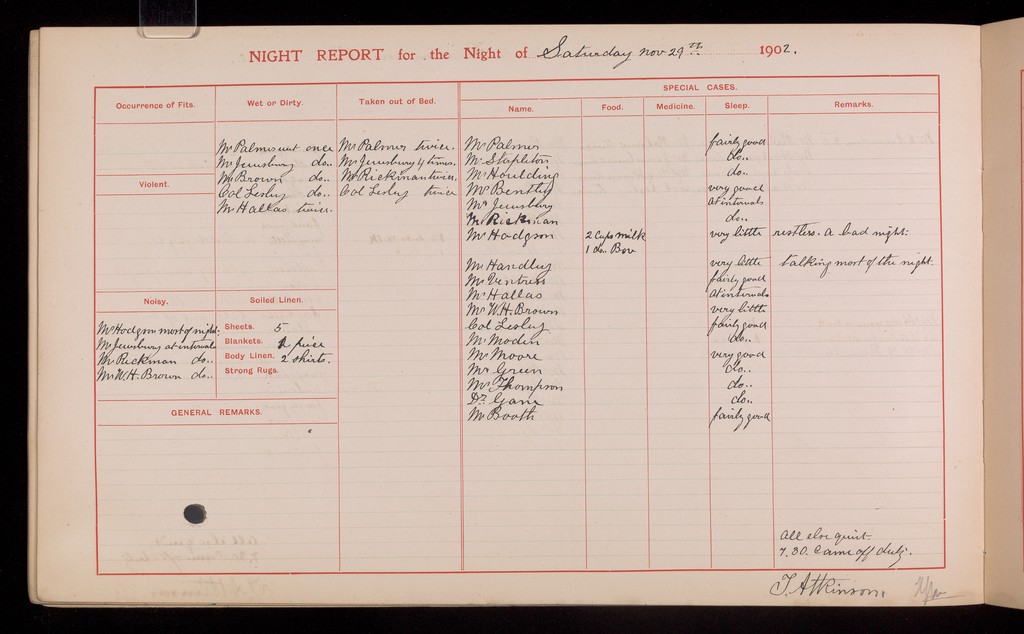 NIGHT REPORT for the Night of Saturday Nov 29th 1902.
Occurrence of Fits.
Violent.
Noisy.
Mr Hodgson most of night.
Mr Jewsbury at intervals
Mr Rickman do..
Mr W.H. Brown do..
Wet or Dirty.
Mr Palmer wet once
Mr Jewsbury do..
Mr Brown do..
Col Lesley do..
Mr Hallas twice.
Soiled Linen.
Sheets. 5
Blankets. 2 piece
Body Linen. 2 shirts.
Strong Rugs.
GENERAL REMARKS.
Taken out of Bed.
Mr Palmer twice.
Mr Jewsbury 4 times.
Mr Rickman twice.
Col Lesley twice
SPECIAL CASES.
Name. Food. Medicine. Sleep. Remarks.
Mr Palmer fairly good
Mr Stapleton do..
Mr Houlding do..
Mr Bentley very good
Mr Jewsbury at intervals
Mr Rickman do..
Mr Hodgson 2 Cups milk very little restless. a bad night.
1 do.. Bov
Mr Handley very little talking most of the night.
Mr Ventress fairly good
Mr Hallas at intervals
Mr W.H. Brown very little
Col Lesley fairly good
Mr Moden do..
Mr Moore very good
Mr Green do..
Mr Thompson do..
Dr Gane do..
Mr Booth fairly good
All else quiet
7.30. Came off duty.
T. Atkinson.